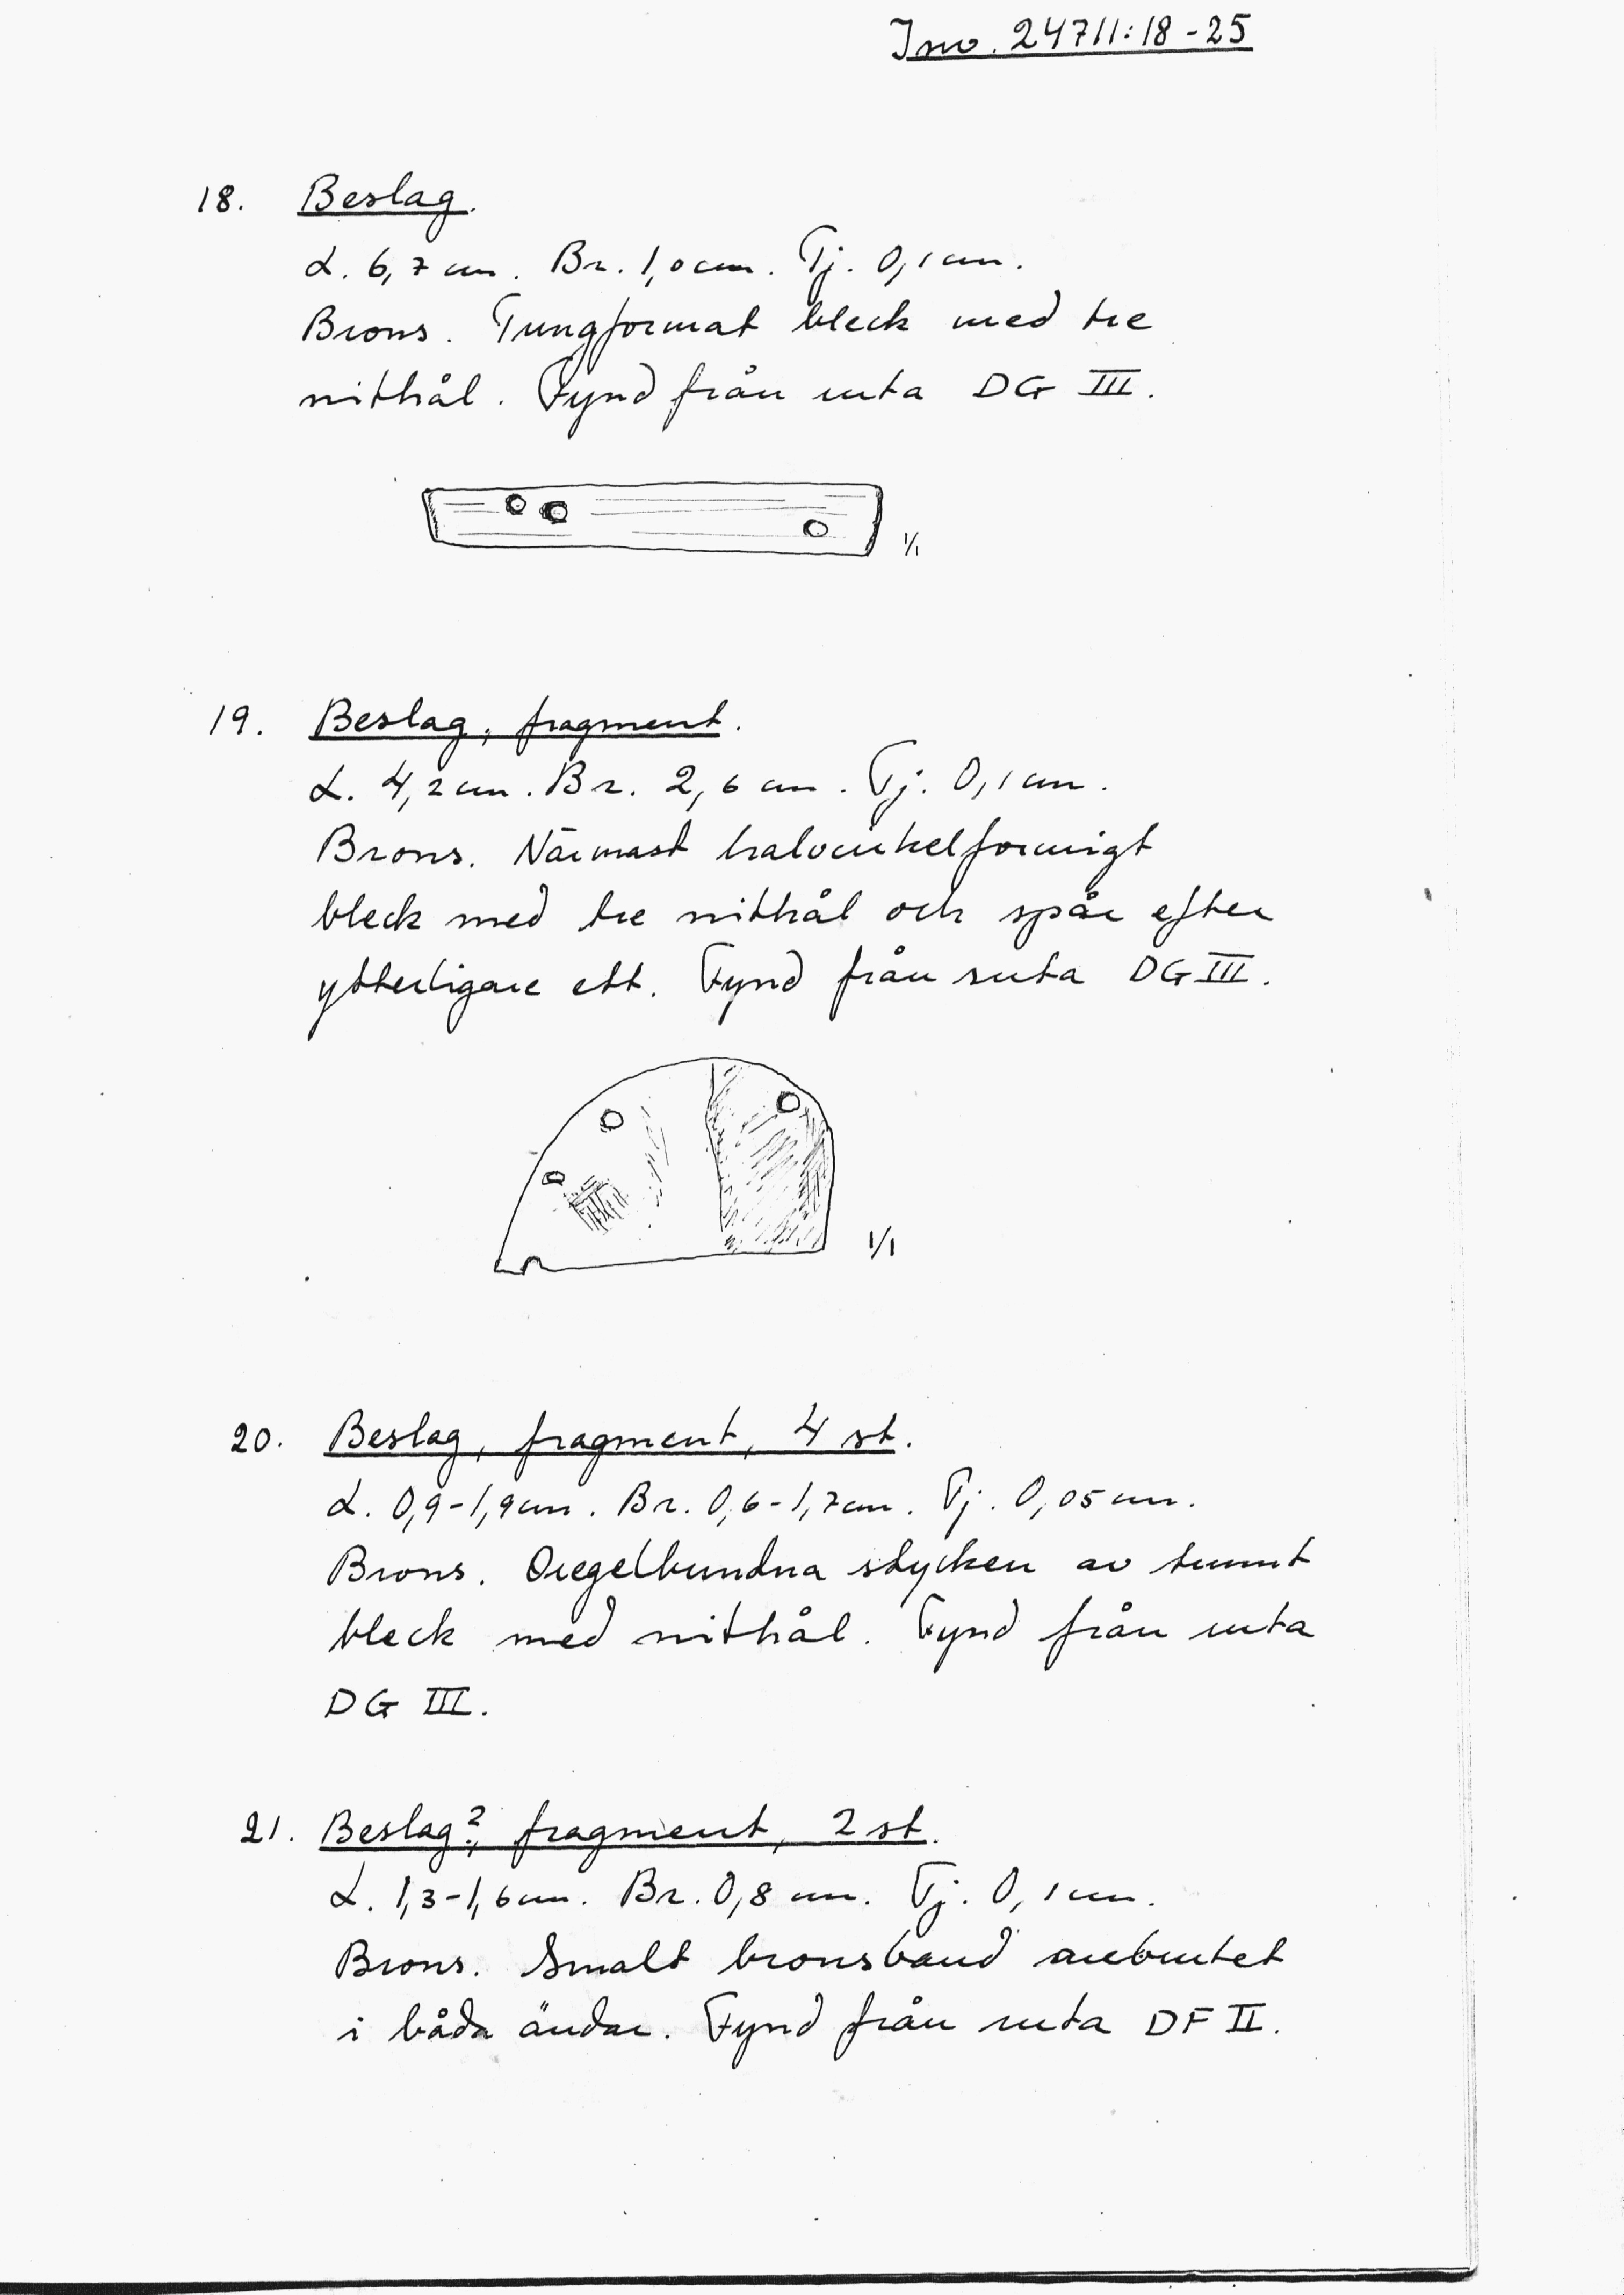 Inv. 24711:18-25
18. Beslag.
L. 6,7 cm. Br. 1,0 cm. Tj. 0,1 cm.
Brons. Tungformat bleck med tre
nithål. Fynd från ruta DG III.
1/1
19. Beslag, fragment.
L. 4,2 cm. Br. 2,6 cm. Tj. 0,1 cm.
Brons. Närmast halvcirkelformigt
bleck med tre nithål och spår efter
ytterligare ett. Fynd från ruta DG III.
1/1
20. Beslag, fragment, 4 st.
L. 0,9-1,9 cm. Br. 0,6-1,7 cm. Tj. 0,05 cm.
Brons. Oregelbundna stycken av tunnt
bleck med nithål. Fynd från ruta
DG III.
21. Beslag?, fragment, 2 st.
L. 1,3-1,6 cm. Br. 0,8 cm. Tj. 0,1 cm.
Brons. Smalt bronsband avbrutet
i båda ändar. Fynd från ruta DF II.